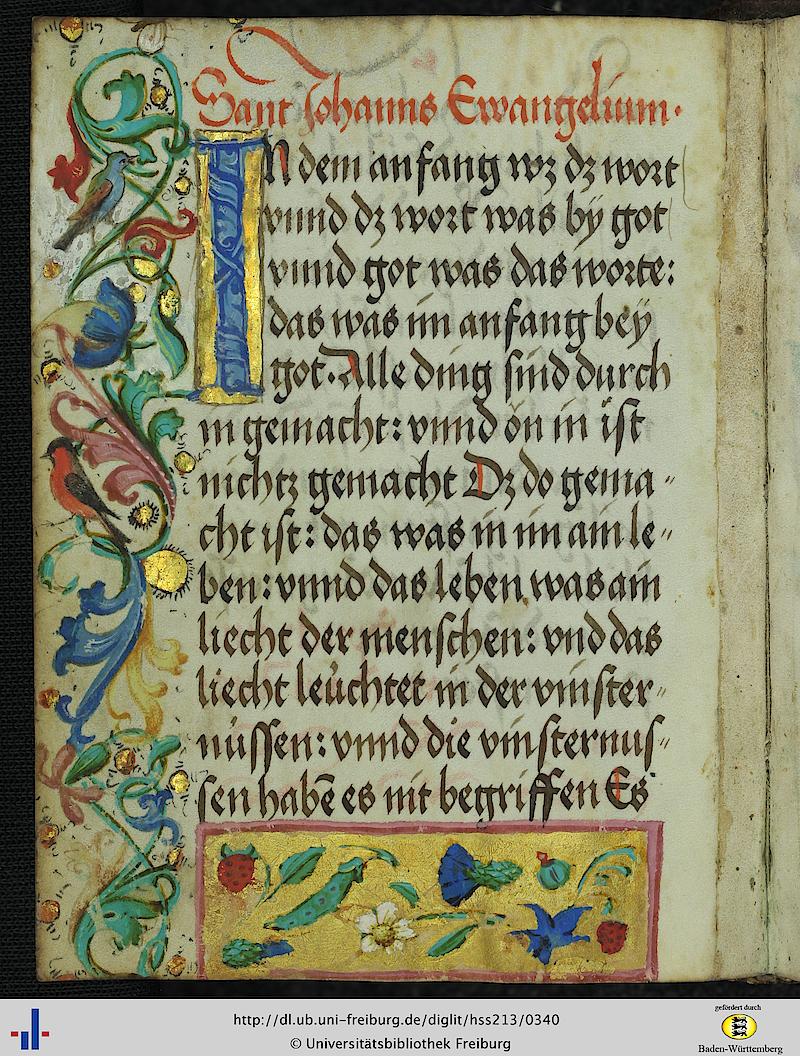 Sant Johanns Ewangelium.
IN dem anfang wz dz wort
vnnd dz wort was bÿ got
vnnd got was das worte:
das was im anfang beÿ
got. Alle ding sind durch
in gemacht: vnnd on in ist
nichtz gemacht Dz do gema〃
cht ist: das was in im ain le〃
ben: vnnd das leben was ain
liecht der menschen: vnd das
liecht leůchtet in der vinster〃
nüssen: vnnd die vinsternus〃
sen habē es nit begriffen Es
http://dl.ub.uni-freiburg.de/diglit/hss213/0340
© Universitätsbibliothek Freiburg
gefördert durch
Baden-Württemberg